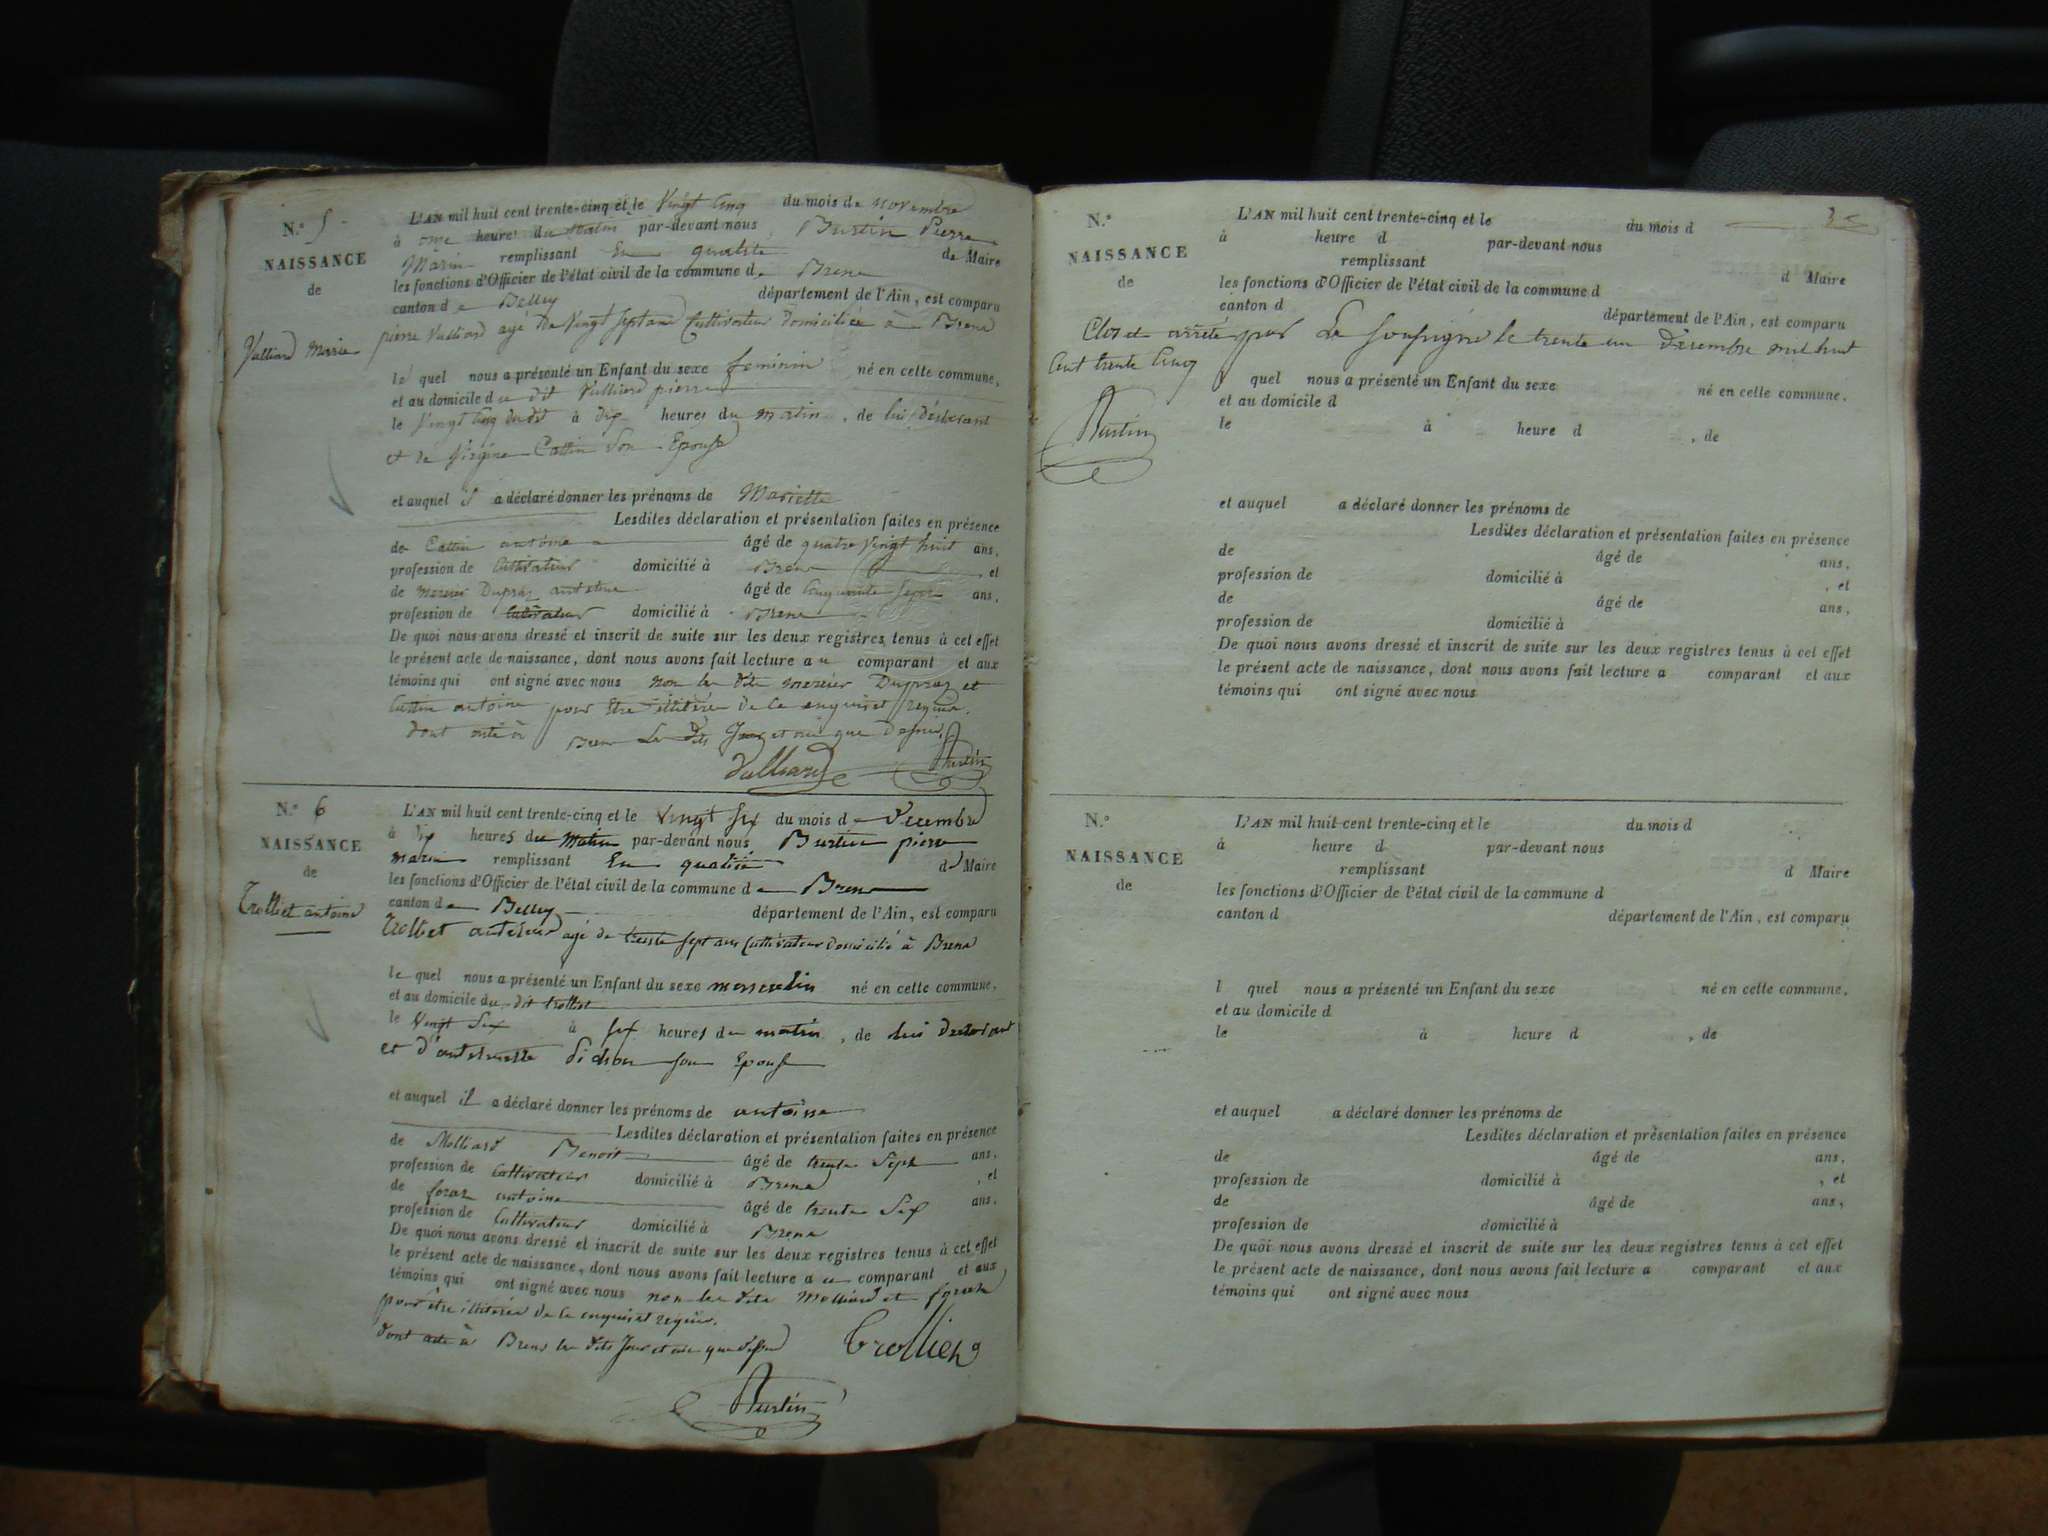 N.º 5
NAISSANCE
de
Vulliard Marie
L'AN mil huit cent trente-cinq et le Vingt Cinq du mois de novembre
à onze heures du matin par-devant nous Burtin Pierre
Marin remplissant En qualité de Maire
les fonctions d'Officier de l'état civil de la commune de Brens
canton de Belley département de l'Ain, est comparu
pierre Vulliard agé de Vingt Sept ans Cultivateur domiciliée à Brens
le quel nous a présenté un Enfant du sexe feminin né en cette commune,
et au domicile du dit Vulliard pierre
le Vingt Cinq dudit à dix heures du matin, de lui Déclarant
et de Cattin Son Epouse
et auquel il a déclaré donner les prénoms de Mariette
Lesdites déclaration et présentation faites en présence
de Cattin antoine âgé de quatre Vingt huit ans,
profession de Cultivateur domicilié à Brens, et
de mercier Dupraz antoine âgé de Cinquante ans,
profession de Cultivateur domicilié à Brens
De quoi nous avons dressé et inscrit de suite sur les deux registres tenus à cet effet
le présent acte de naissance, dont nous avons fait lecture au comparant et aux
témoins qui ont signé avec nous non les dits mercier Dupraz et
Cattin antoine pour être illitérés de ce enquis et requis.
dont acte à Brens Les dits Jour et an que Dessus
Vulliard Burtin
N.º 6
NAISSANCE
de
Trolliet antoine
L'AN mil huit cent trente-cinq et le Vingt Six du mois de Décembre
à dix heures du Matin par-devant nous Burtin pierre
marin remplissant En qualité d Maire
les fonctions d'Officier de l'état civil de la commune de Brens
canton de Belley département de l'Ain, est comparu
Trolliet antoine agé de trente sept ans Cultivateur domicilié à Brens
le quel nous a présenté un Enfant du sexe masculin né en cette commune,
et au domicile du dit trolliet
le Vingt Six à six heures du matin, de lui Déclarant
et d'antoinette son Epouse
et auquel il a déclaré donner les prénoms de antoine
Lesdites déclaration et présentation faites en présence
de Molliard Benoit âgé de trente Sept ans,
profession de Cultivateur domicilié à Brens, et
de foraz antoine âgé de trente Six ans,
profession de Cultivateur domicilié à Brens
De quoi nous avons dressé et inscrit de suite sur les deux registres tenus à cet effet
le présent acte de naissance, dont nous avons fait lecture au comparant et aux
témoins qui ont signé avec nous non les dits Molliard et foraz
pour être illitérés de ce enquis et requis.
dont acte à Brens les dits Jour et an que dessus
Trolliet
Burtin
N.º
NAISSANCE
de
L'AN mil huit cent trente-cinq et le du mois d
à heure d par-devant nous
remplissant d Maire
les fonctions d'Officier de l'état civil de la commune d
canton d département de l'Ain, est comparu
Clos et arrêté par Le Soussigné le trente un Décembre mil huit
Cent trente Cinq
l quel nous a présenté un Enfant du sexe né en cette commune,
et au domicile d
Burtin
le à heure d , de
et auquel a déclaré donner les prénoms de
Lesdites déclaration et présentation faites en présence
de âgé de ans,
profession de domicilié à , et
de âgé de ans,
profession de domicilié à
De quoi nous avons dressé et inscrit de suite sur les deux registres tenus à cet effet
le présent acte de naissance, dont nous avons fait lecture a comparant et aux
témoins qui ont signé avec nous
N.º
NAISSANCE
de
L'AN mil huit cent trente-cinq et le du mois d
à heure d par-devant nous
remplissant d Maire
les fonctions d'Officier de l'état civil de la commune d
canton d département de l'Ain, est comparu
l quel nous a présenté un Enfant du sexe né en cette commune,
et au domicile d
le à heure d , de
et auquel a déclaré donner les prénoms de
Lesdites déclaration et présentation faites en présence
de âgé de ans,
profession de domicilié à , et
de âgé de ans,
profession de domicilié à
De quoi nous avons dressé et inscrit de suite sur les deux registres tenus à cet effet
le présent acte de naissance, dont nous avons fait lecture a comparant et aux
témoins qui ont signé avec nous